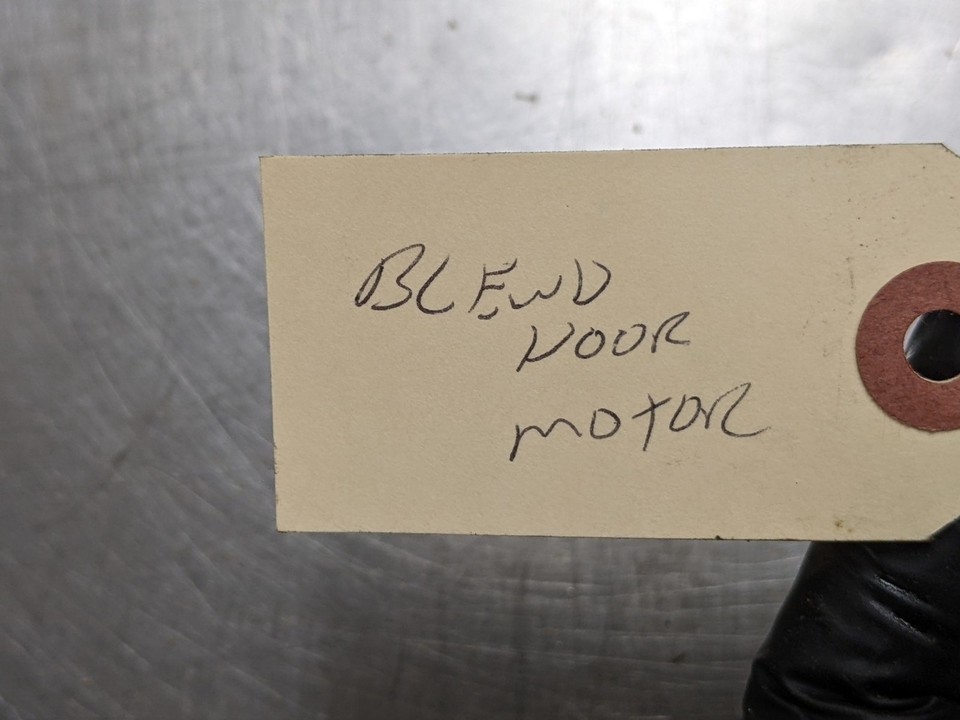 BLEND
DOOR
MOTOR